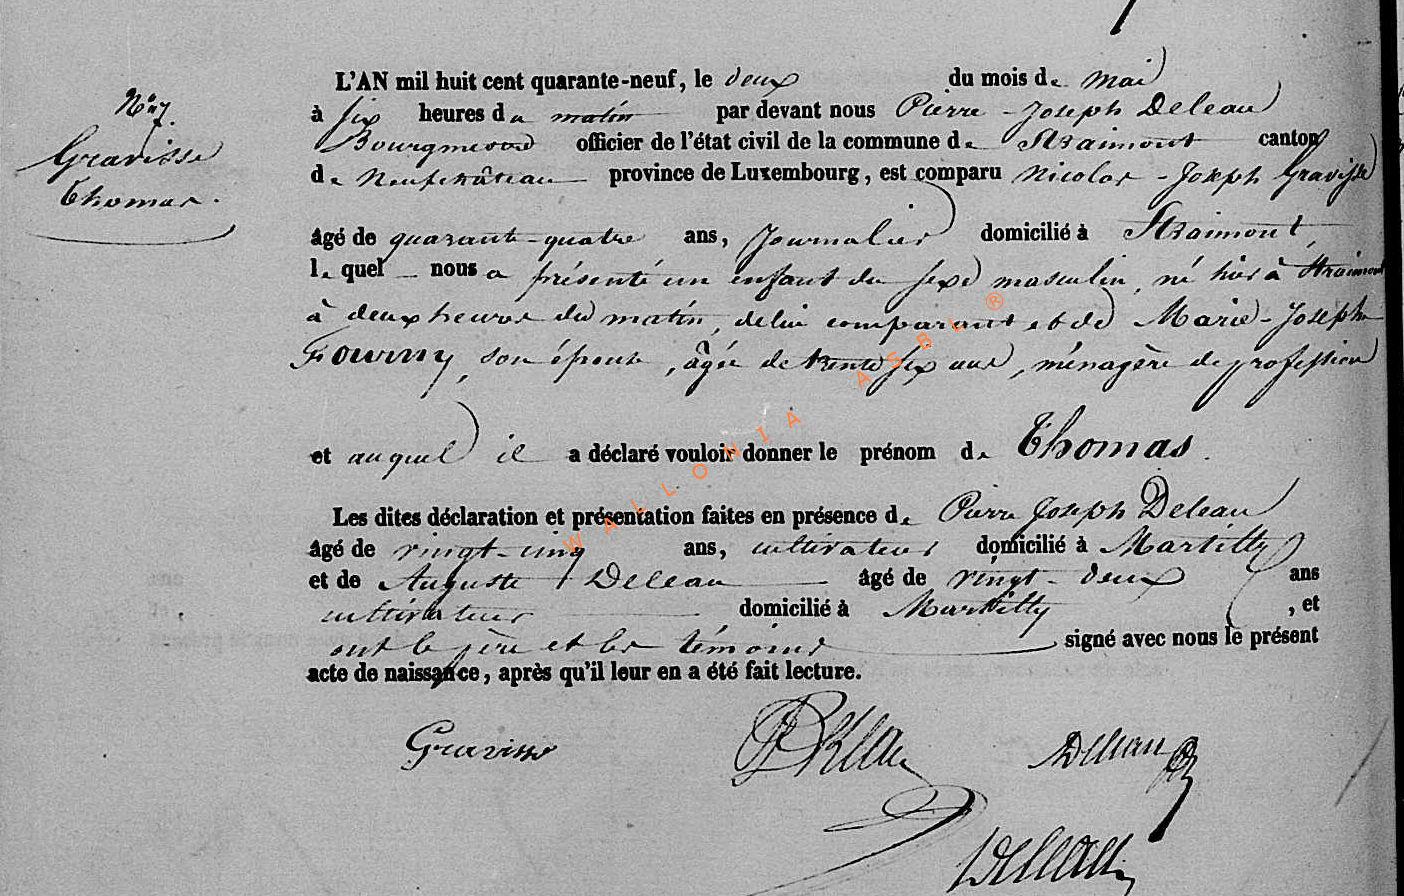 L'AN mil huit cent quarante-neuf, le deux du mois de mai
à six heures du matin par devant nous Pierre-Joseph Deleau
Bourgmestre officier de l'état civil de la commune de Straimont canton
de Neufchâteau province de Luxembourg, est comparu Nicolas-Joseph Gravisse
âgé de quarante-quatre ans, Journalier domicilié à Straimont,
lequel nous a présenté un enfant du sexe masculin, né hier à Straimont
à deux heures du matin, de lui comparant et de Marie-Joseph
Fourny, son épouse, âgée de trente six ans, ménagère de profession
et auquel il a déclaré vouloir donner le prénom de Thomas.
Les dites déclaration et présentation faites en présence de Pierre Joseph Deleau
âgé de vingt-cinq ans, cultivateur domicilié à Martilly
et de Auguste Deleau âgé de vingt-deux ans
cultivateur domicilié à Martilly, et
ont le père et les témoins signé avec nous le présent
acte de naissance, après qu'il leur en a été fait lecture.
Gravisse
Deleau
Deleau
Gravisse
Thomas.
WALLONIA ASBL ®